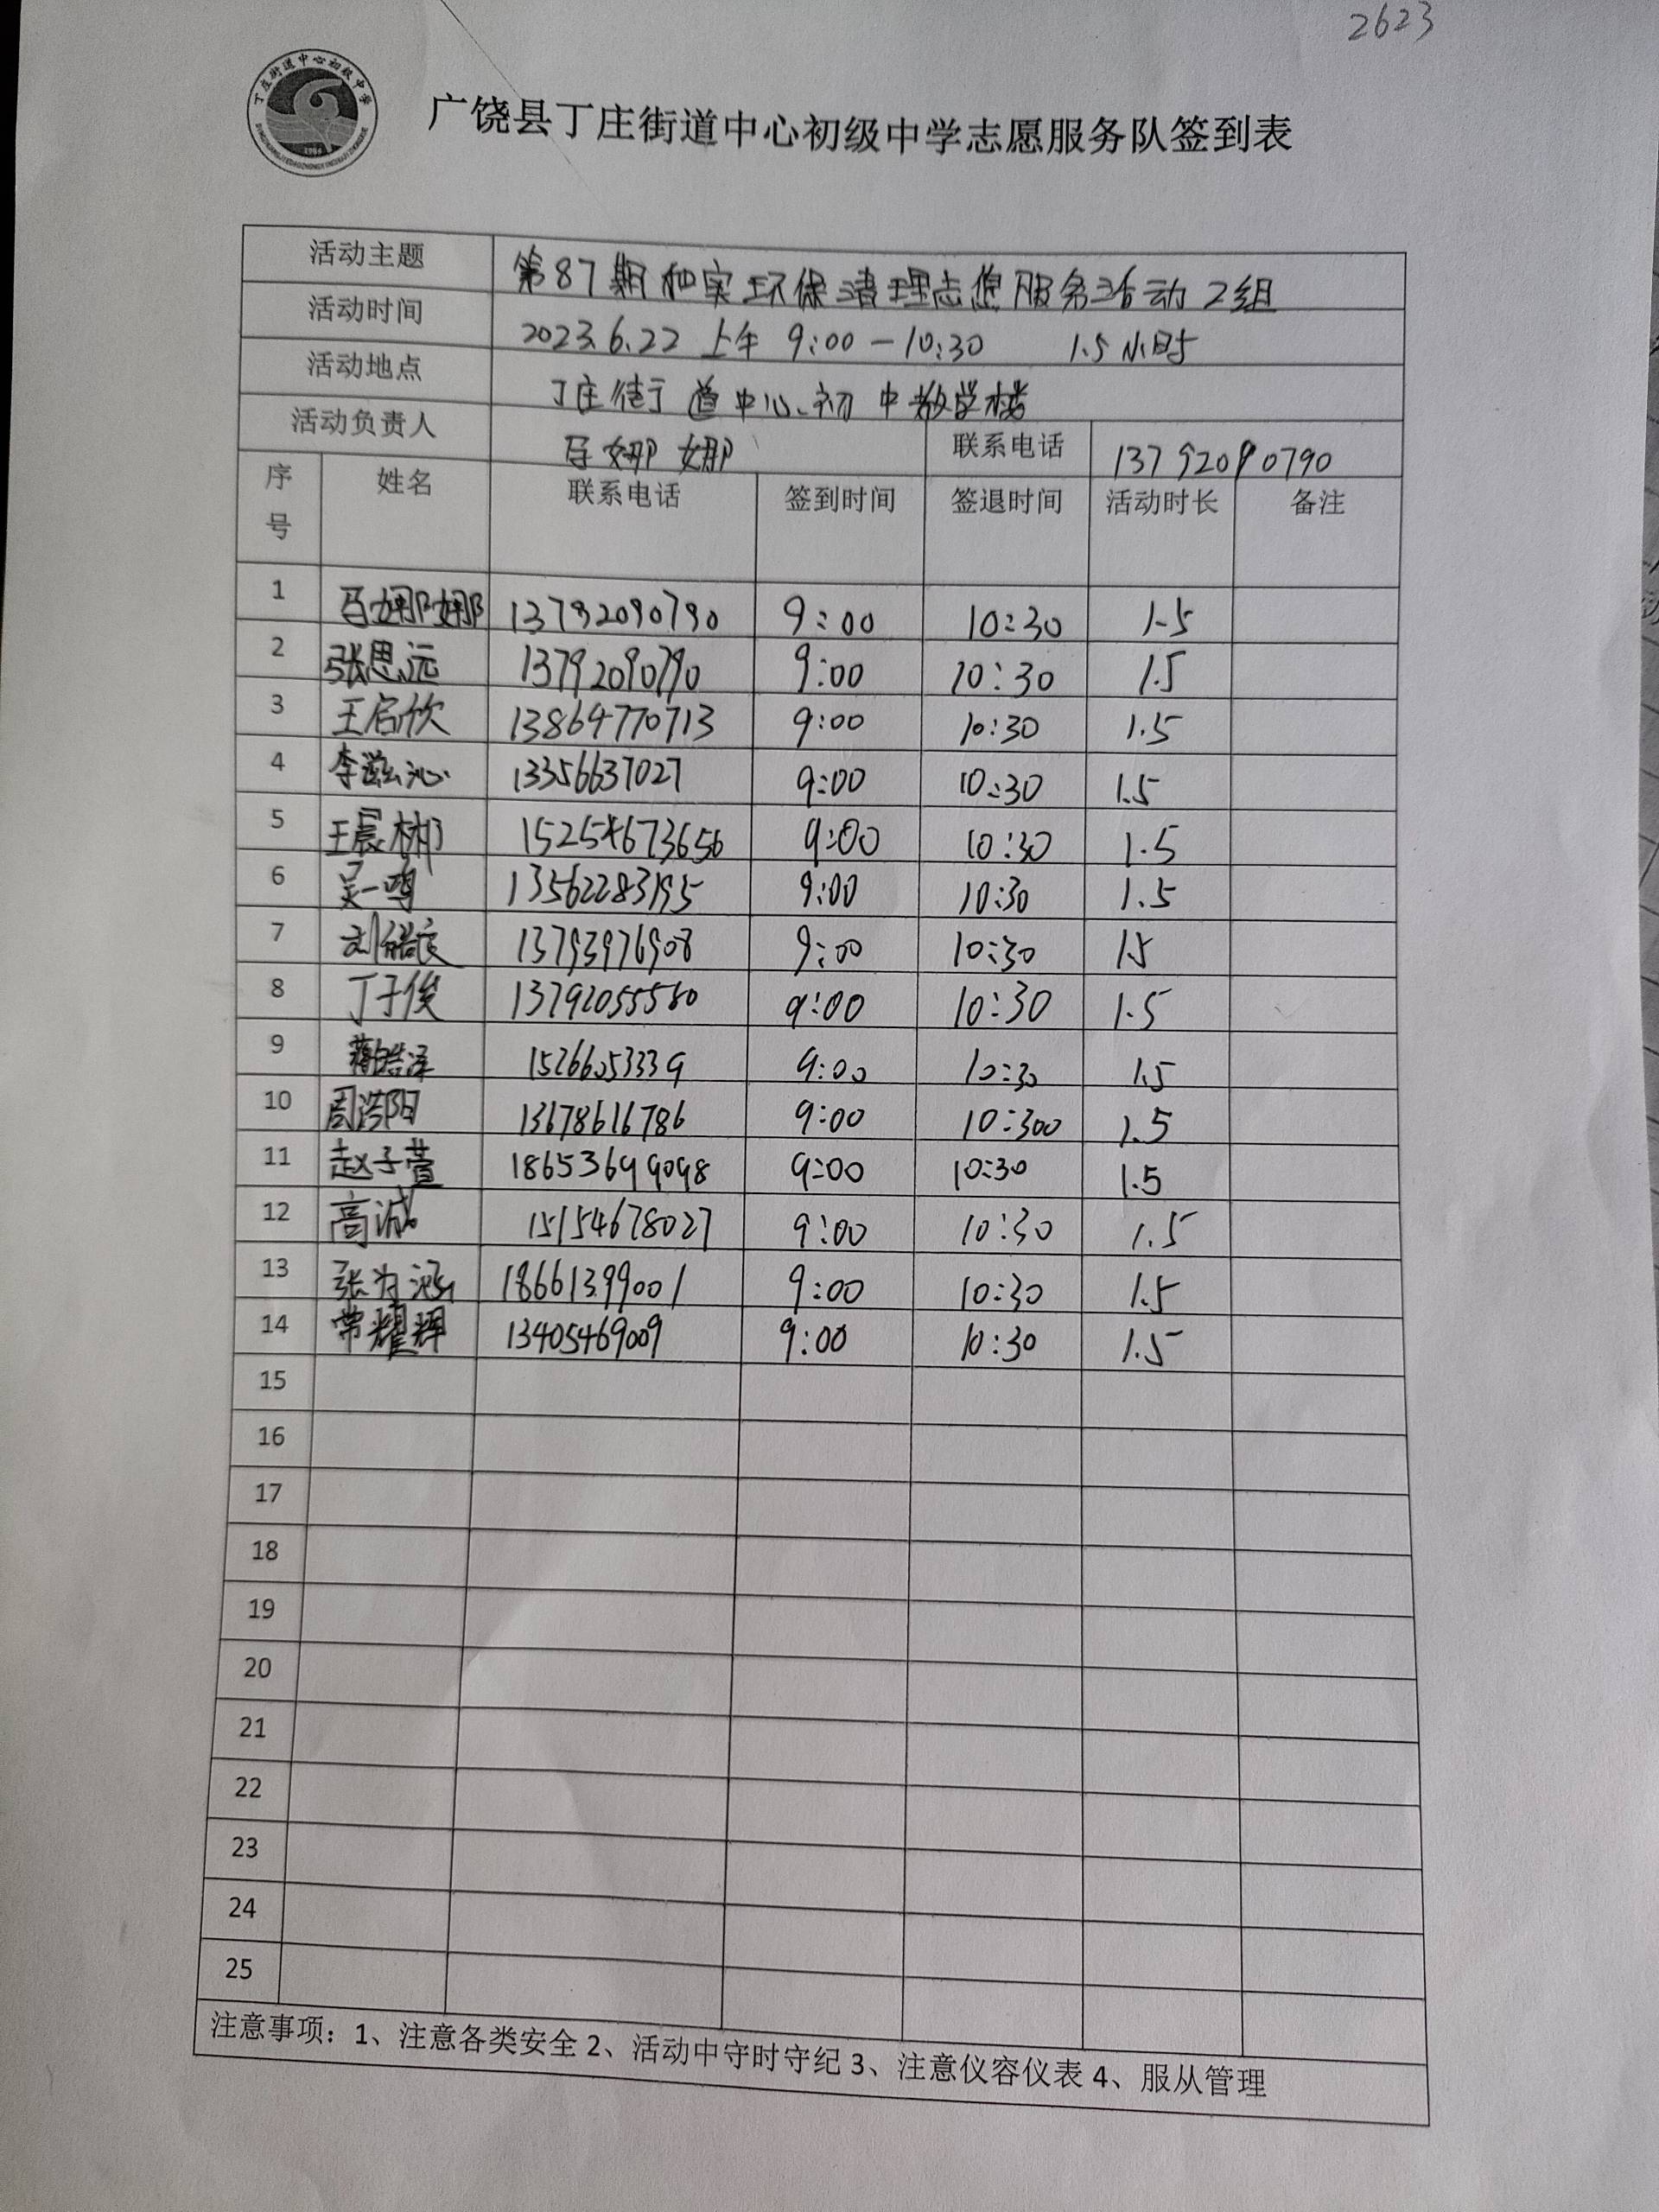 2623
丁庄街道中心初级中学
广饶县丁庄街道中心初级中学志愿服务队签到表
活动主题 第87期和实环保清理志愿服务活动2组
活动时间 2023.6.22 上午 9:00-10:30 1.5小时
活动地点 丁庄街道中心初中教学楼
活动负责人 娜娜 联系电话 13792090790
序号 姓名 联系电话 签到时间 签退时间 活动时长 备注
1 娜娜 13792090790 9:00 10:30 1.5
2 张思远 13792090790 9:00 10:30 1.5
3 王启欣 13864770713 9:00 10:30 1.5
4 李滋沁 13356637027 9:00 10:30 1.5
5 王晨彬 15254673656 9:00 10:30 1.5
6 吴一鸣 13562283195 9:00 10:30 1.5
7 刘 13793976908 9:00 10:30 1.5
8 丁子俊 13792055580 9:00 10:30 1.5
9 蒋皓泽 15266053339 9:00 10:30 1.5
10 周浩阳 13678616786 9:00 10:300 1.5
11 赵子萱 18653699098 9:00 10:30 1.5
12 高诚 15154678027 9:00 10:30 1.5
13 张为涵 18661399001 9:00 10:30 1.5
14 荣耀辉 13405469009 9:00 10:30 1.5
15
16
17
18
19
20
21
22
23
24
25
注意事项：1、注意各类安全 2、活动中守时守纪 3、注意仪容仪表 4、服从管理